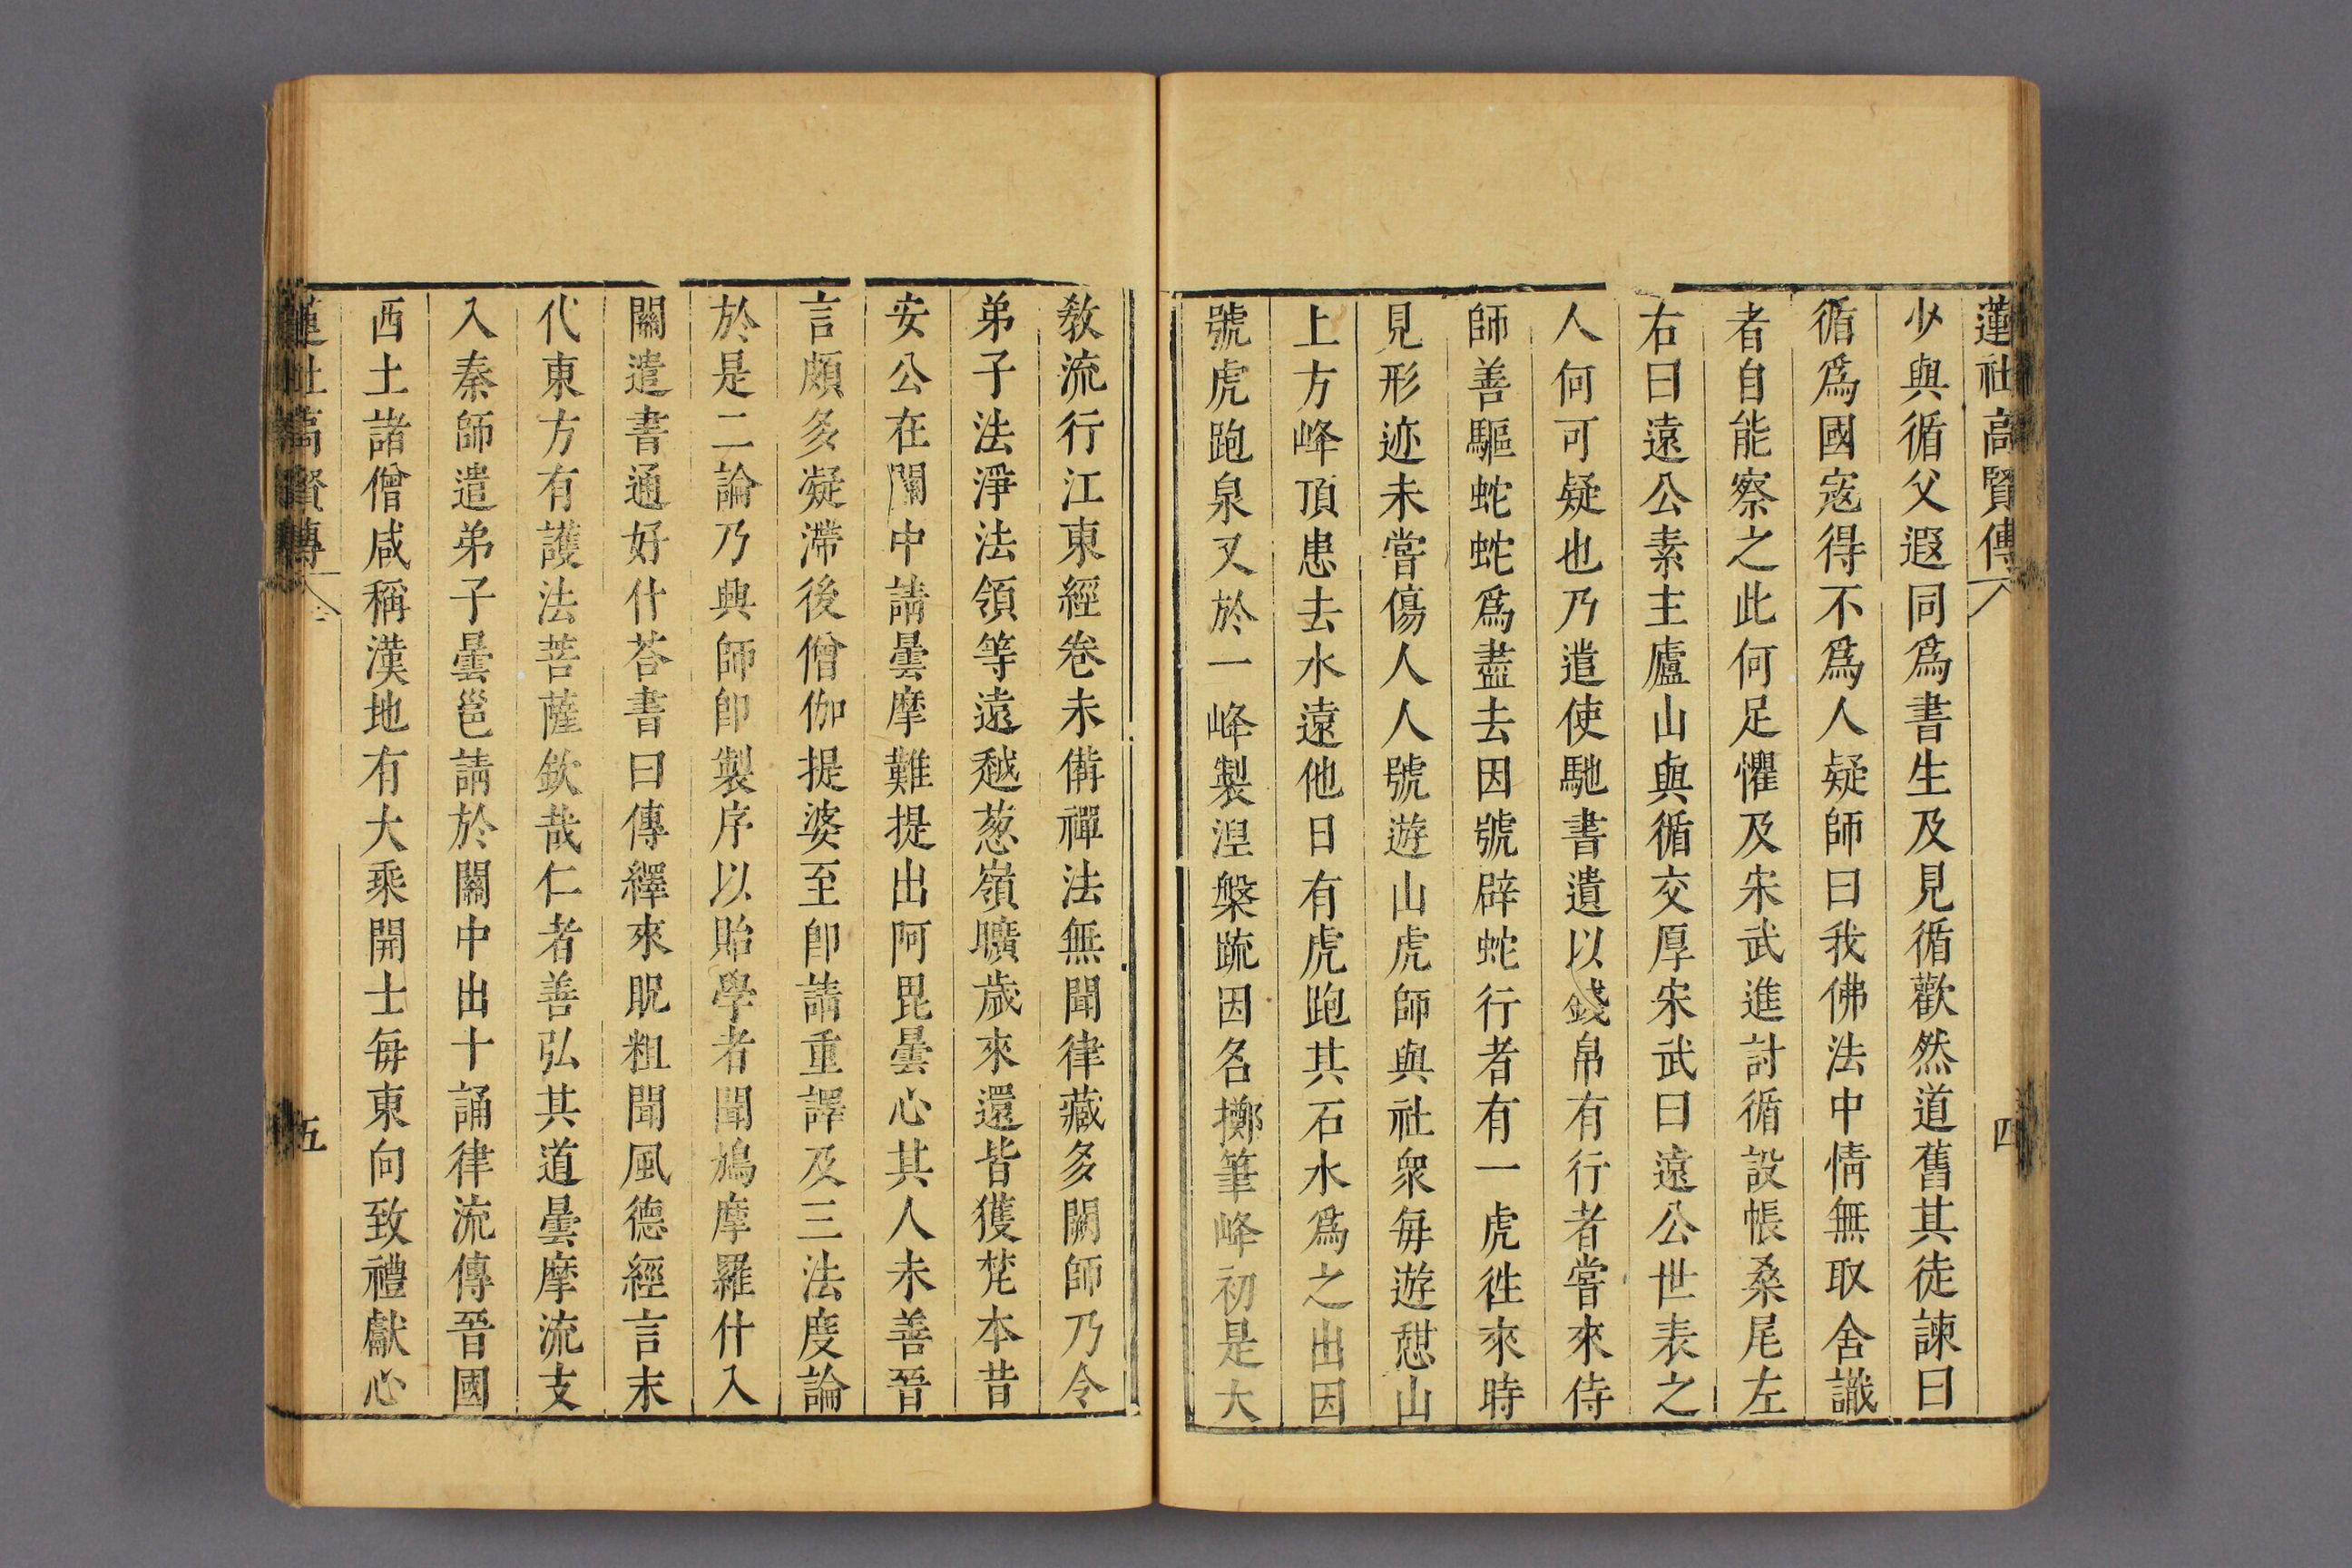 蓮社高賢傳
四
少與循父遐同爲書生及見循歡然道舊其徒諫曰
循爲國寇得不爲人疑師曰我佛法中情無取舍識
者自能察之此何足懼及宋武進討循設帳桑尾左
右曰遠公素主廬山與循交厚宋武曰遠公世表之
人何可疑也乃遣使馳書遺以錢帛有行者嘗來侍
師善驅蛇蛇爲盡去因號辟蛇行者有一虎徃來時
見形迹未嘗傷人人號遊山虎師與社衆每遊憇山
上方峰頂患去水遠他日有虎跑其石水爲之出因
號虎跑泉又於一峰製涅槃䟽因名擲筆峰初是大
敎流行江東經卷未備禪法無聞律藏多闕師乃令
弟子法淨法領等遠越葱嶺曠歲來還皆獲梵本昔
安公在關中請曇摩難提出阿毘曇心其人未善晉
言頗多凝滯後僧伽提婆至卽請重譯及三法度論
於是二論乃興師卽製序以貽學者聞鳩摩羅什入
關遣書通好什荅書曰傳繹來貺粗聞風德經言末
代東方有護法菩薩欽哉仁者善弘其道曇摩流支
入秦師遣弟子曇邕請於關中出十誦律流傳晉國
西土諸僧咸稱漢地有大乘開士每東向致禮獻心
蓮社高賢傳
五